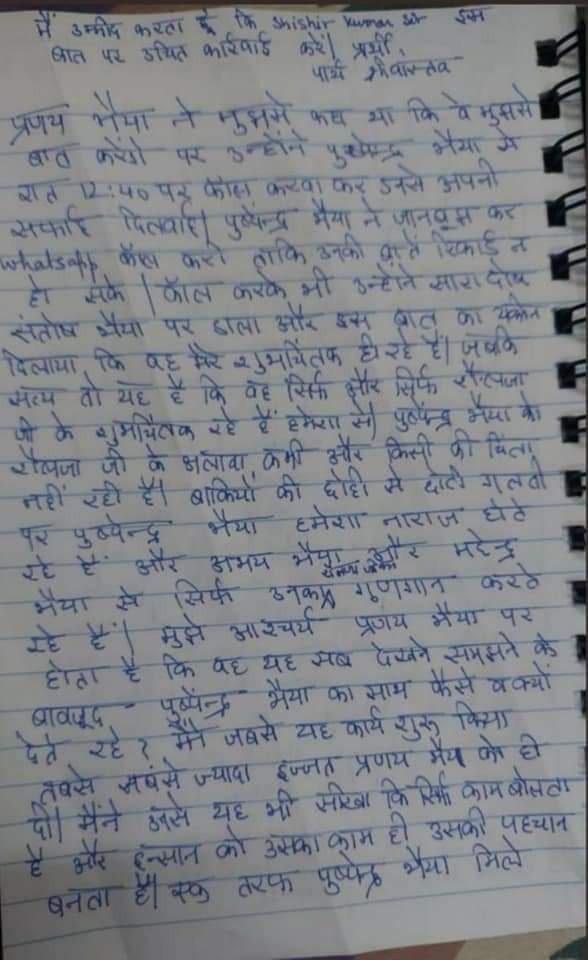 मैं उम्मीद करता हूँ कि Shishir Kumar Sir इस
बात पर उचित कार्रवाई करें। प्रार्थी,
पार्थ श्रीवास्तव
प्रणय भैया ने मुझसे कहा था कि वे मुझसे
बात करेंगे पर उन्होंने पुष्पेन्द्र भैया से
रात 12:40 पर कॉल करवा कर उनसे अपनी
सफाई दिलवाई। पुष्पेन्द्र भैया ने जानबूझ कर
whatsapp कॉल करी ताकि उनकी बातें रिकार्ड न
हो सके। कॉल करके भी उन्होंने सारा दोष
संतोष भैया पर डाला और इस बात का यकीन
दिलाया कि वह मेरे शुभचिंतक ही रहे हैं। जबकि
सत्य तो यह है कि वह सिर्फ और सिर्फ शैलजा
जी के शुभचिंतक रहे हैं हमेशा से। पुष्पेन्द्र भैया को
शैलजा जी के अलावा कभी और किसी की चिंता
नहीं रही है। बाकियों की छोटी से छोटी गलती
पर पुष्पेन्द्र भैया हमेशा नाराज होते
रहे हैं और अभय भैया और महेन्द्र
भैया से सिर्फ उनका गुणगान करते
रहे हैं। मुझे आश्चर्य प्रणय भैया पर
होता है कि वह यह सब देखने समझने के
बावजूद पुष्पेन्द्र भैया का साथ कैसे व क्यों
देते रहे? मैंने जबसे यह कार्य शुरू किया
तबसे सबसे ज्यादा इज्जत प्रणय भैया को ही
दी। मैंने उनसे यह भी सीखा कि सिर्फ काम बोलता
है और इन्सान को उसका काम ही उसकी पहचान
बनता है। एक तरफ पुष्पेन्द्र भैया मिले